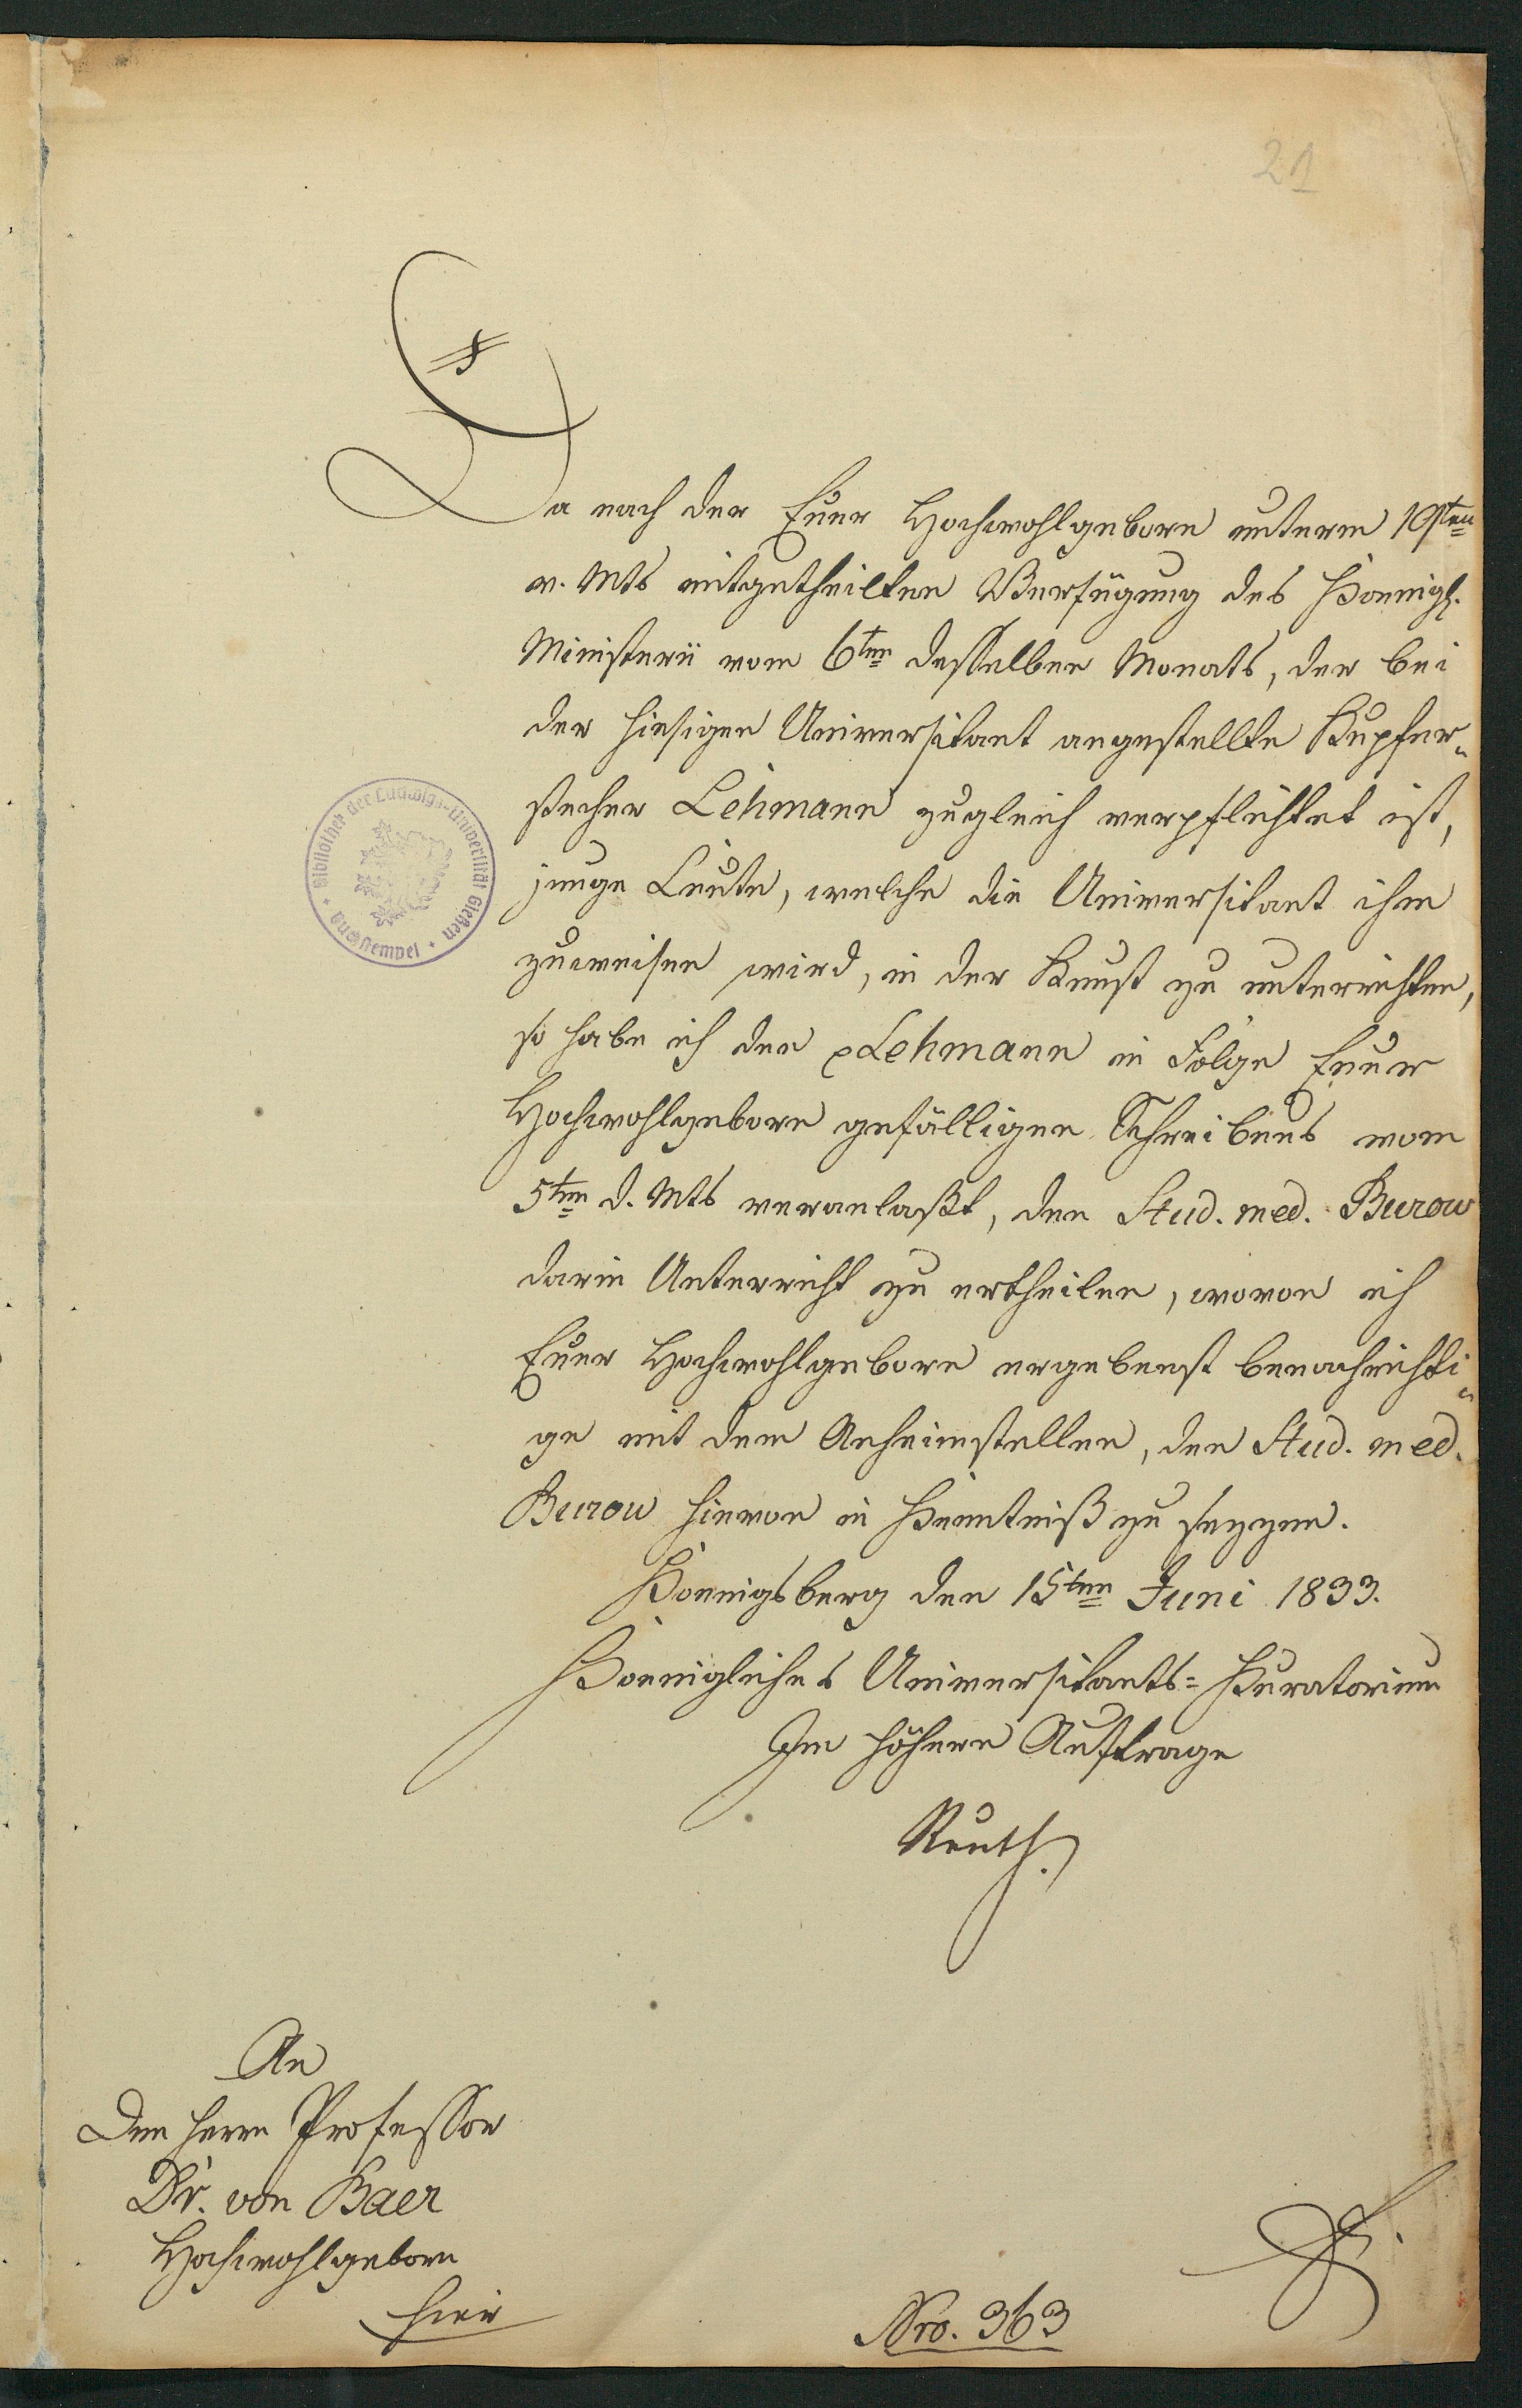 21
Da nach der Euer Hochwohlgeboren unterm 19ten
v. Mts mitgetheilten Verfügung des Koenigl.
Ministerii vom 6ten desselben Monats, der bei
der hiesigen Universitaet angestellte Kupfer-
stecher Lehmann zugleich verpflichtet ist,
junge Leute, welche die Universitaet ihm
zuweisen wird, in der Kunst zu unterrichten,
so habe ich den Lehmann in Folge Euer
Hochwohlgeboren gefälligen Schreibens vom
5ten d. Mts veranlaßt, den Stud. med. Burow
darin Unterricht zu ertheilen, wovon ich
Euer Hochwohlgeboren ergebenst benachrichti-
ge mit dem Anheimstellen, den Stud. med.
Burow hievon in Kenntniß zu sezzen.
Koenigsberg den 15ten Juni 1833.
Koenigliches Universitaets-Kuratorium
Im höhern Auftrage
Reuth.
Bibliothek der Ludwigs-Universität Gießen
An
Den Herrn Professor
Dr. von Baer
Hochwohlgeboren
hier
Nro. 363